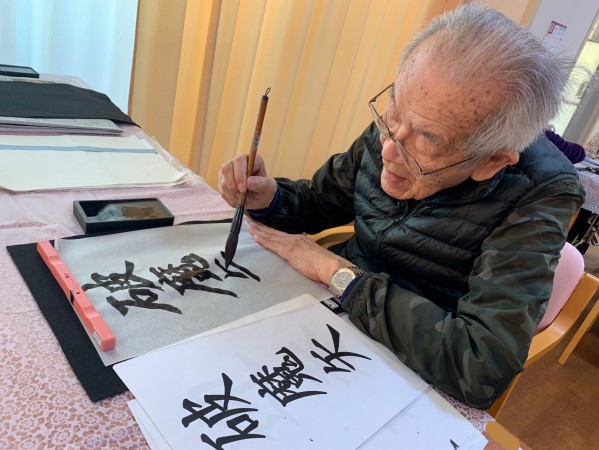 破魔
破魔矢